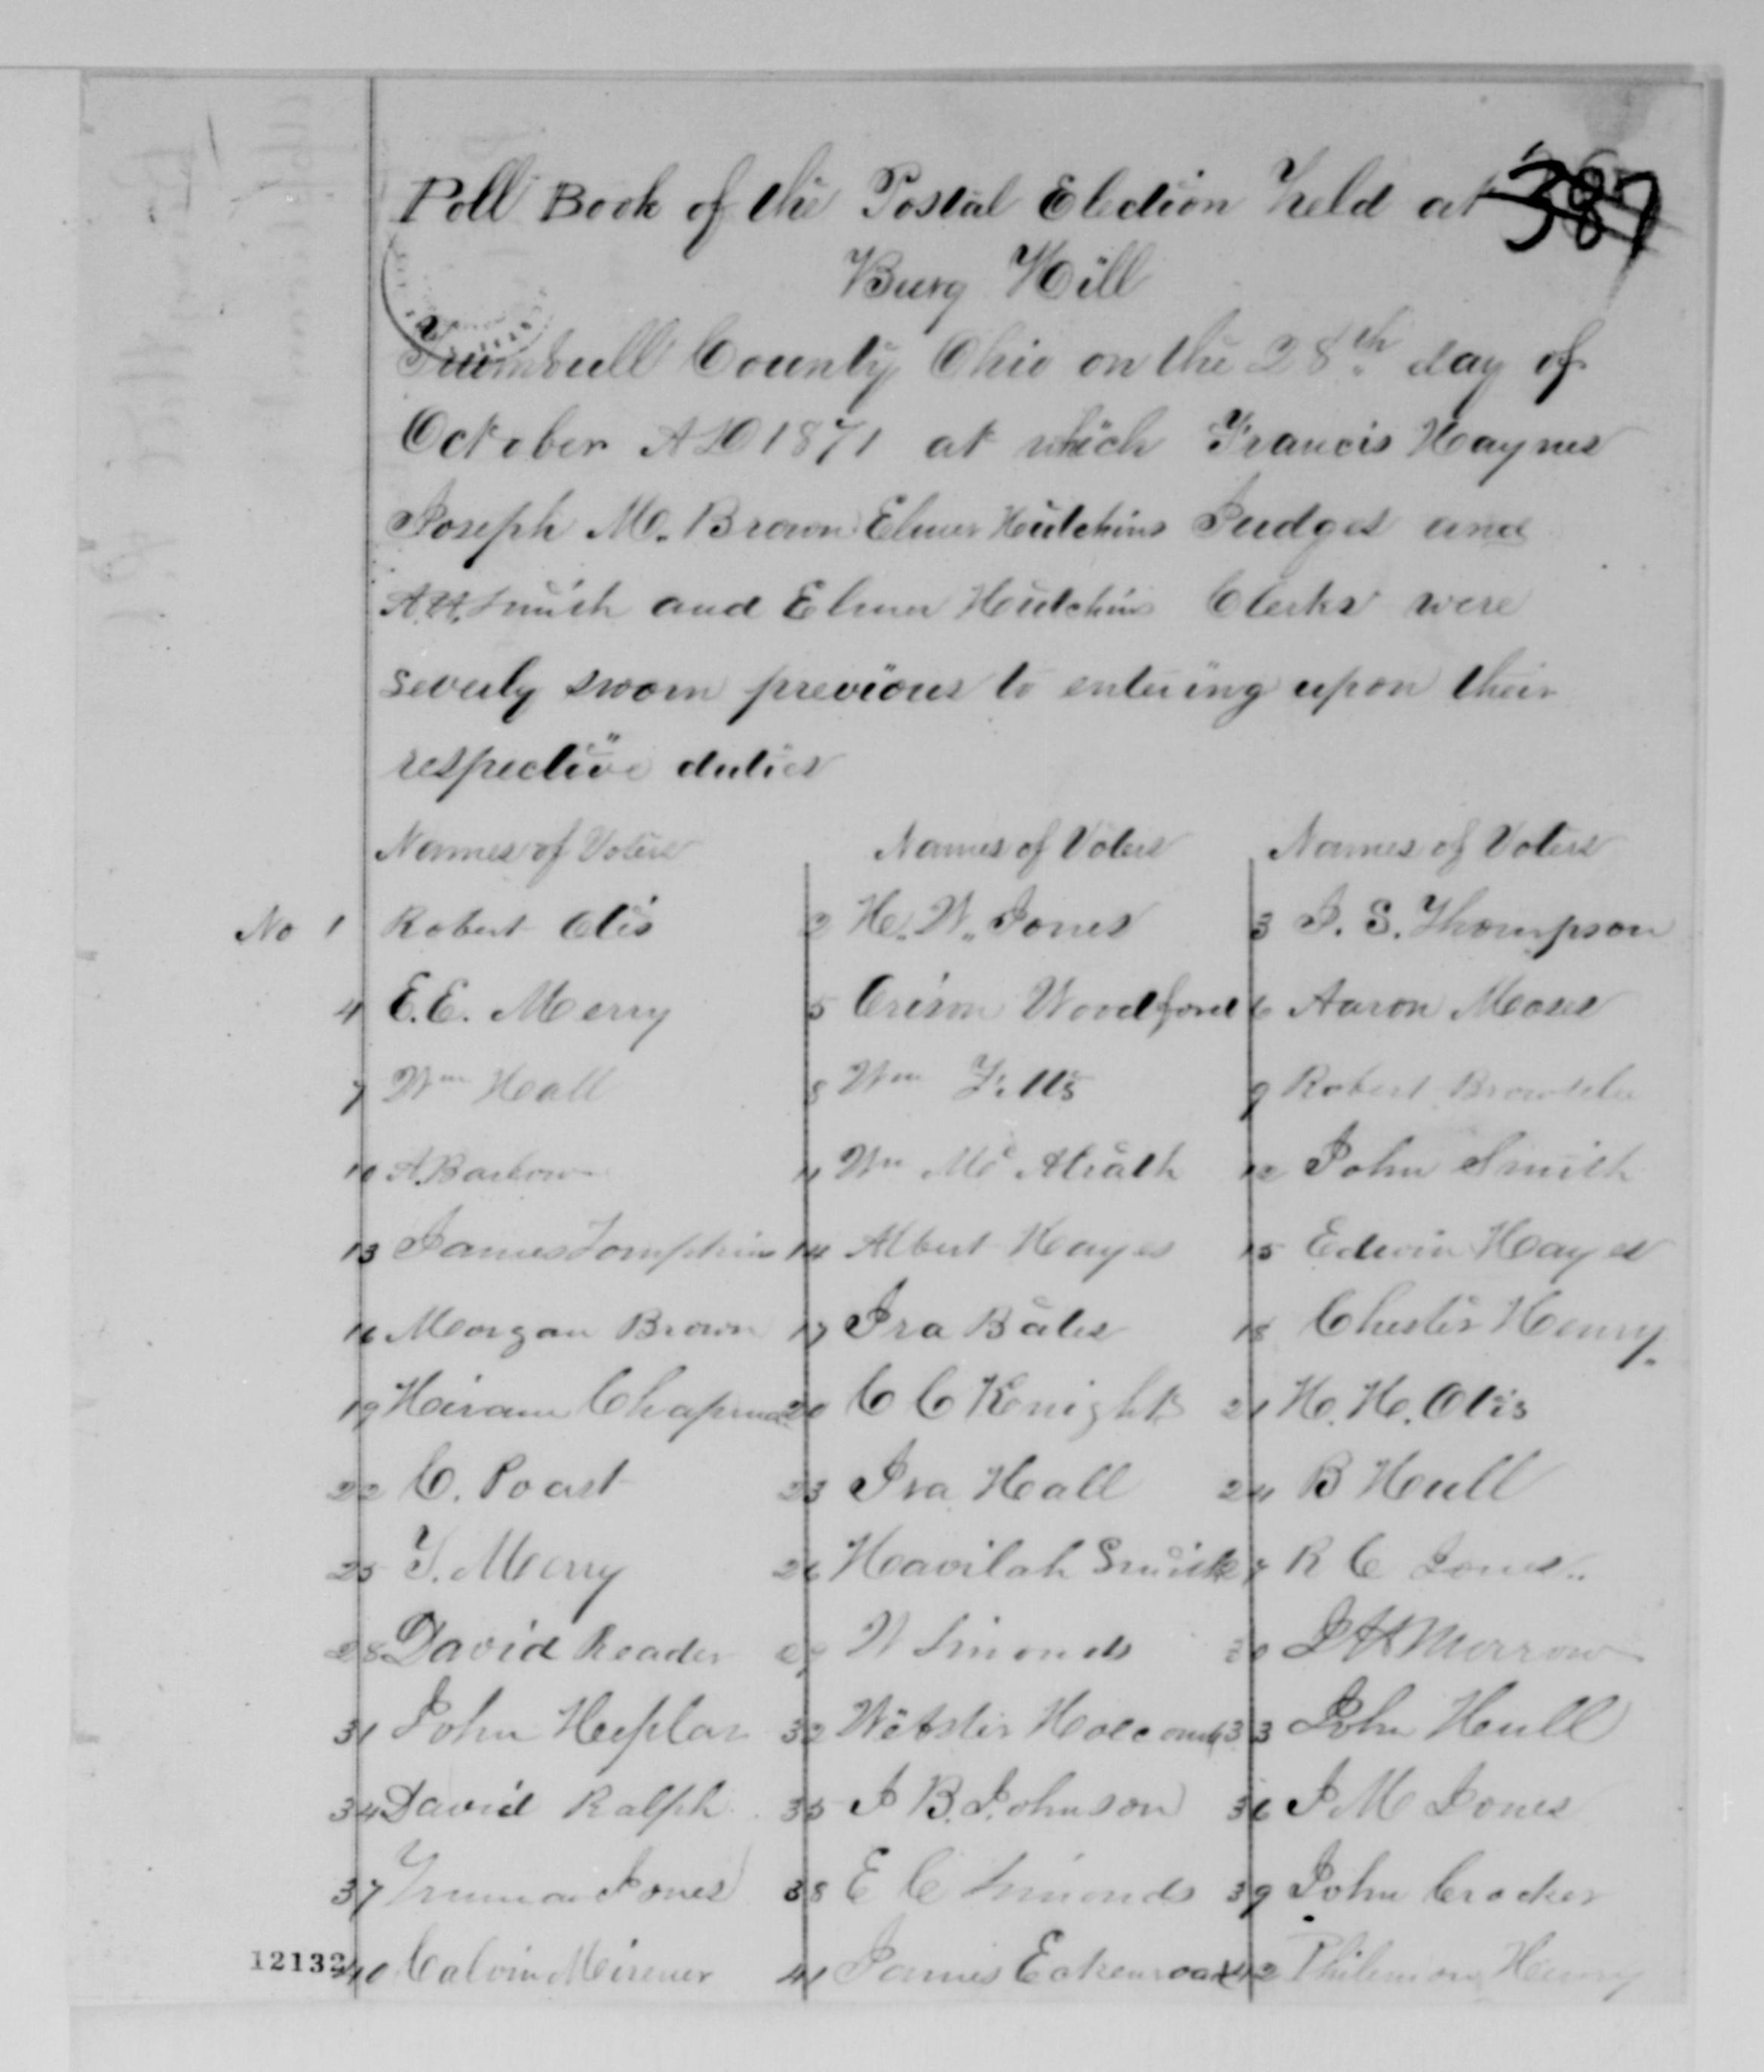 387
Poll Book of the Postal Election held at
Burg Hill
Trumbull County Ohio on the 28th day of
October AD 1871 at which Francis Haynes
Joseph M. Brown Elmer Hutchins Judges and
A.H. Smith and Elmer Hutchins Clerks were
severly sworn previous to entering upon their
respective duties
Names of Voters Names of Voters Names of Voters
No 1 Robert Otis 2 H. W. Jones 3 J. S. Thompson
4 E. E. Merry 5 Orison Woodford 6 Aaron Moses
7 Wm Hall 8 Wm Fitts 9 Robert
10 A. Barbow 11 Wm Mc 12 John Smith
13 James Tompkins 14 Albert Hayes 15 Edwin Hayes
16 Morgan Brown 17 Ira Bates 18 Chester Henry
19 Hiram Chapman 20 C C Knight 21 H. H. Otis
22 C. Poast 23 Ira Hall 24 B Hull
25 T. Merry 26 Havilah Smith 7 R C Jones
28 David Reader 29 W Simonds 30 J H Morrow
31 John Heplar 32 Webster Holcomb 33 John Hull
34 David Ralph 35 J B. Johnson 36 J M Jones
37 Truman Jones 38 E C Simonds 39 John Crocker
12132 40 Calvin 41 James Eckenroad 42 Philemon Henry